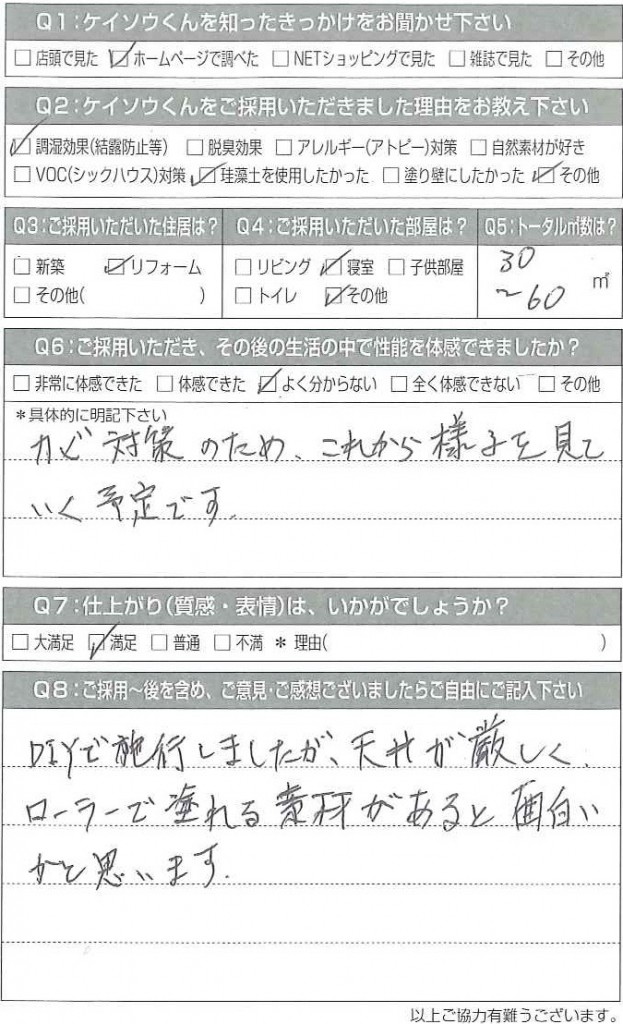 Q1:ケイソウくんを知ったきっかけをお聞かせ下さい
□店頭で見た ☑ホームページで調べた □NETショッピングで見た □雑誌で見た □その他
Q2:ケイソウくんをご採用いただきました理由をお教え下さい
☑調湿効果(結露防止等) □脱臭効果 □アレルギー(アトピー)対策 □自然素材が好き
□VOC(シックハウス)対策 ☑珪藻土を使用したかった □塗り壁にしたかった ☑その他
Q3:ご採用いただいた住居は? Q4:ご採用いただいた部屋は? Q5:トータル㎡数は?
□新築 ☑リフォーム □リビング ☑寝室 □子供部屋 30
□その他( ) □トイレ ☑その他 ~60 ㎡
Q6:ご採用いただき、その後の生活の中で性能を体感できましたか?
□非常に体感できた □体感できた ☑よく分からない □全く体感できない □その他
*具体的に明記下さい
カビ対策のため、これから様子を見て
いく予定です.
Q7:仕上がり(質感・表情)は、いかがでしょうか?
□大満足 ☑満足 □普通 □不満 *理由( )
Q8:ご採用〜後を含め、ご意見・ご感想ございましたらご自由にご記入下さい
DIYで施行しましたが、天井が厳しく、
ローラーで塗れる素材があると面白い
かと思います.
以上ご協力有難うございます。